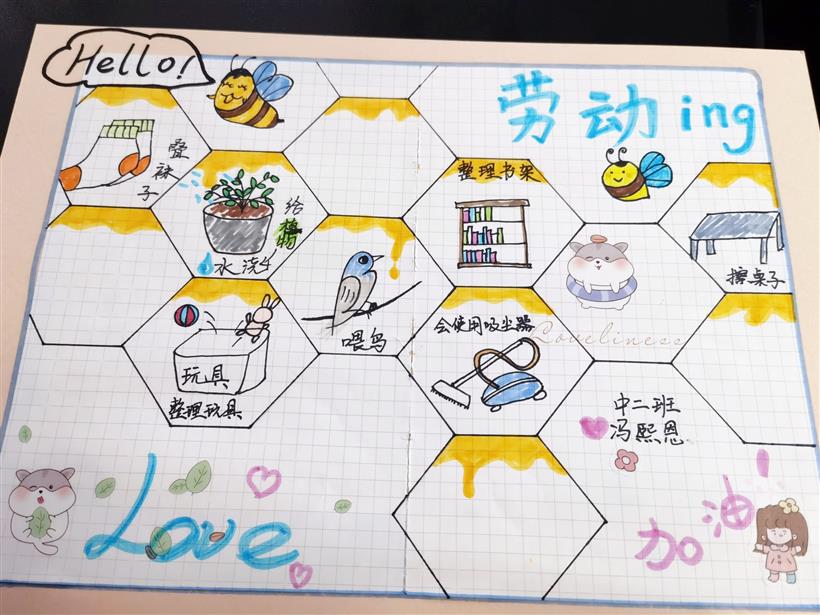 Hello!
劳动ing
叠袜子
给植物
水浇
整理书架
擦桌子
喂鸟
会使用吸尘器
Loveliness
玩具
整理玩具
中二班
冯熙恩
Love
加油!